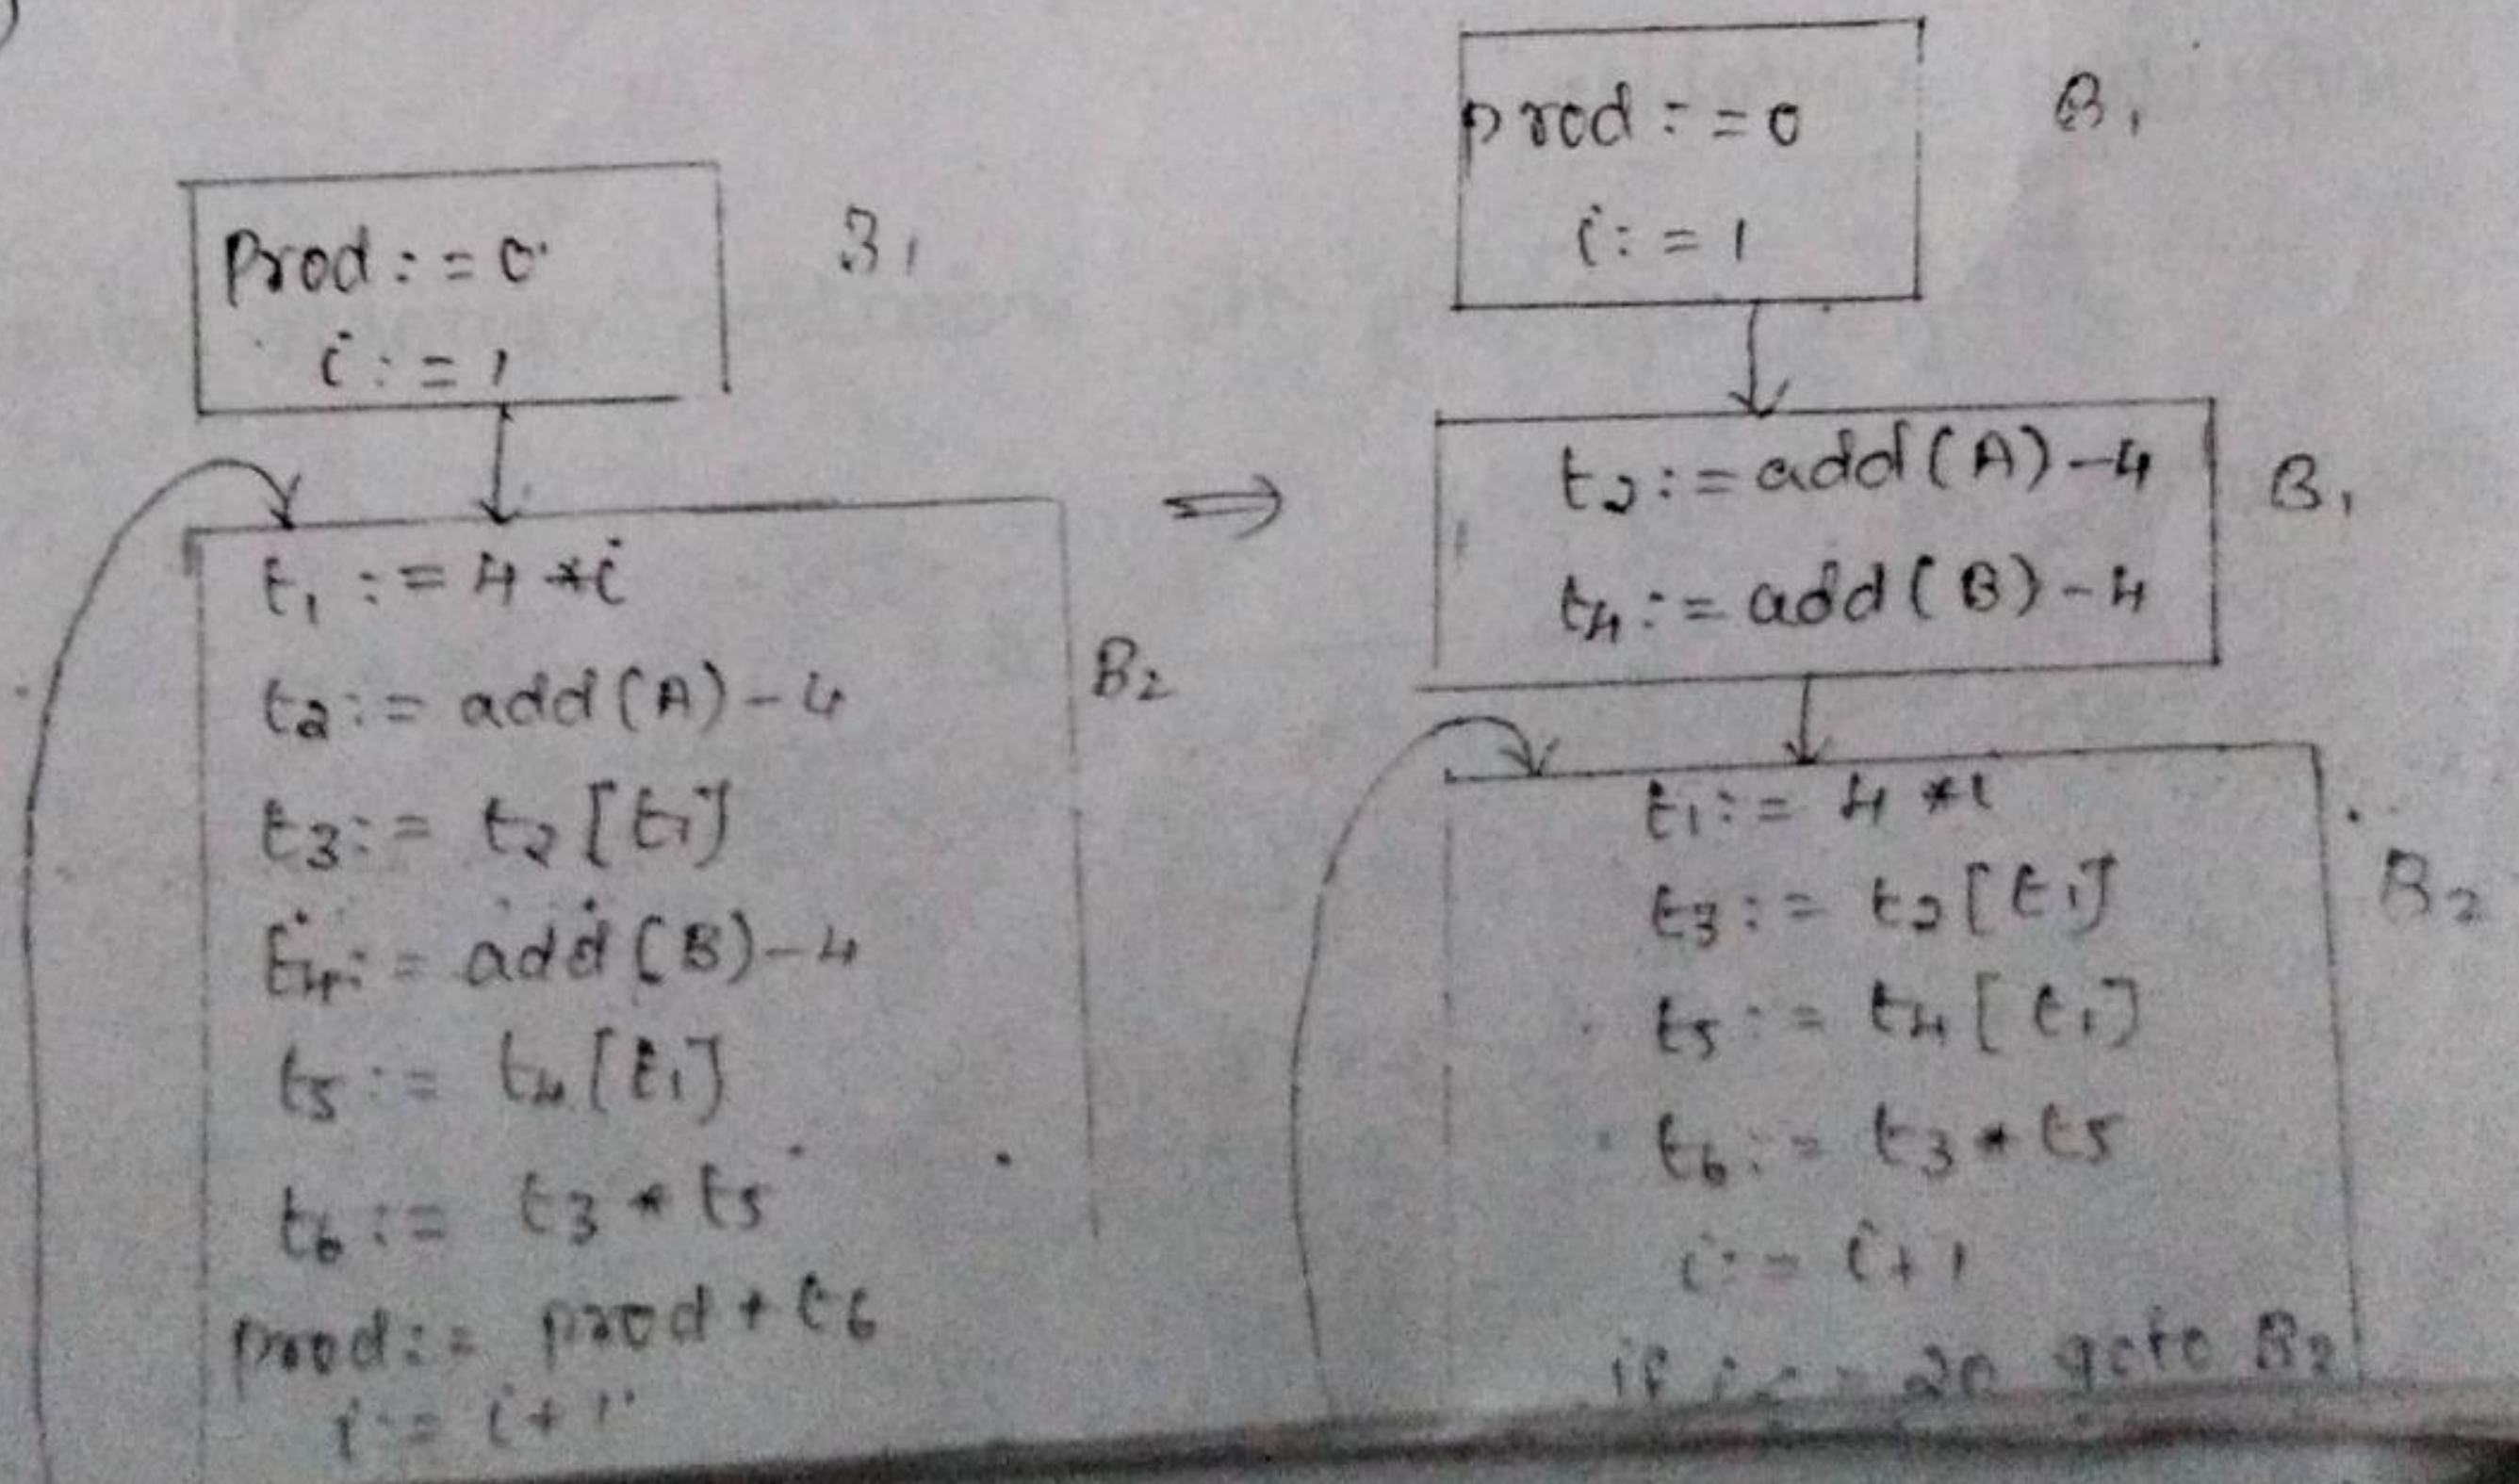 Prod := 0
i := 1
B1
t1 := 4 * i
t2 := add (A) - 4
t3 := t2 [t1]
t4 := add (B) - 4
t5 := t4 [t1]
t6 := t3 * t5
prod := prod + t6
i := i + 1
B2
⇒
prod := 0
i := 1
B1
t2 := add (A) - 4
t4 := add (B) - 4
B1
t1 := 4 * i
t3 := t2 [t1]
t5 := t4 [t1]
t6 := t3 * t5
i := i + 1
if i <= 20 goto B2
B2